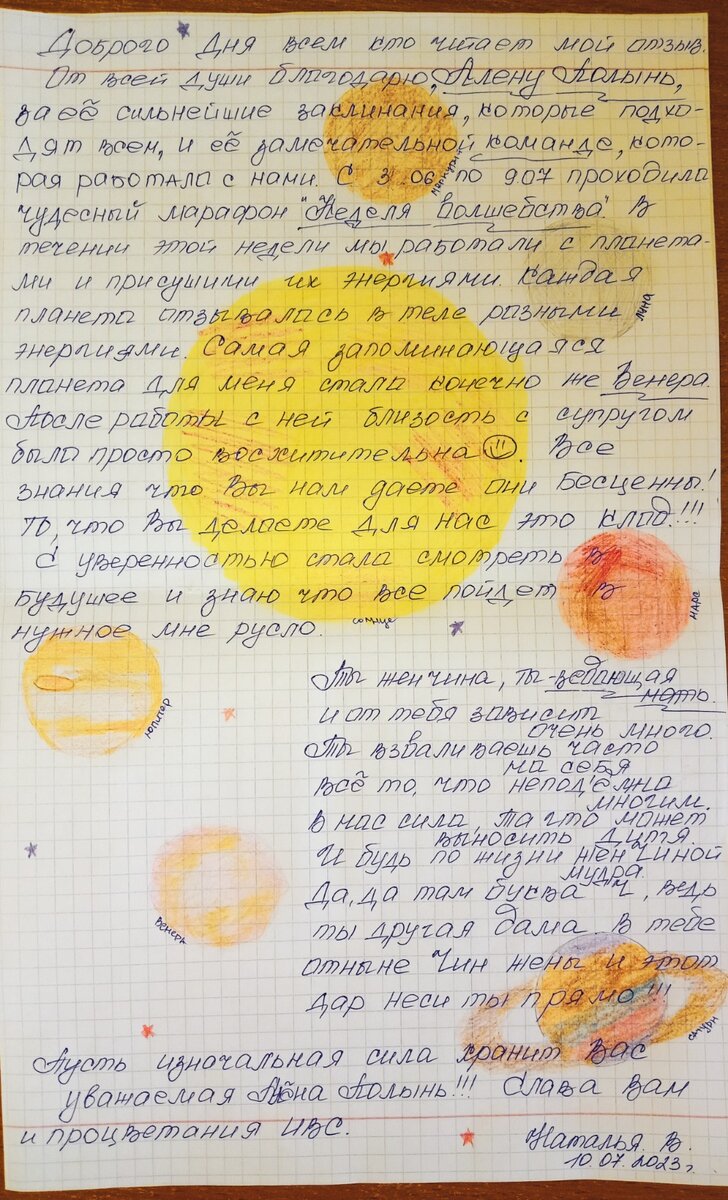 Доброго Дня всем кто читает мой отзыв.
От всей души благодарю, Алену Полынь,
за её сильнейшие заклинания, которые подхо-
дят всем, и её замечательной команде, кото-
рая работала с нами. С 3.06 по 9.07 проходила
чудесный марафон "Неделя Волшебства". В
течении этой недели мы работали с планета-
ми и присушими их энергиями. Каждая
планета отзывалась в теле разными
энергиями. Самая запоминающаяся
планета для меня стала конечно же Венера.
После работы с ней близость с супругом
была просто восхитительна. Все
знания что Вы нам даете они бесценны!
То, что Вы делаете для нас это клад!!!
С уверенностью стала смотреть в
будушее и знаю что все пойдет в
нужное мне русло.
меркурий
луна
солнце
марс
юпитер
Ты женчина, ты-ведающая мать.
и от тебя зависит
очень много.
Ты взваливаешь часто
на себя
всё то, что непод'ёмна
многим.
В нас сила, та что может
выносить дитя.
И будь по жизни женЧиной
мудра.
Да, да там буква "Ч", ведь
ты другая дама. В тебе
отныне Чин жены и этот
дар неси ты прямо!!!
венера
сатурн
Пусть изначальная сила хранит Вас
уважаемая Алёна Полынь!!! Слава Вам
и процветания ИВС.
Наталья. В.
10.07.2023г